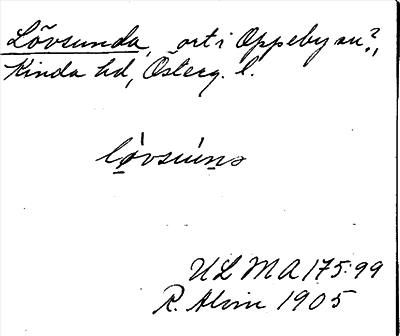 Lövsunda, ort i Oppeby sn?,
Kinda hd, Österg. l.
lø̀vsuńnə
ULMA 175:99
R. Alvin 1905